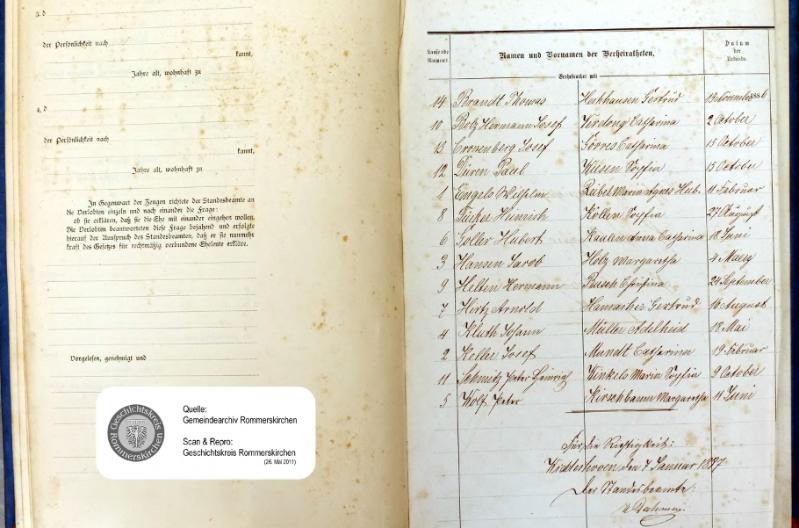 3. d
der Persönlichkeit nach
kannt,
Jahre alt, wohnhaft zu
4. d
der Persönlichkeit nach
kannt,
Jahre alt, wohnhaft zu
In Gegenwart der Zeugen richtete der Standesbeamte an
die Verlobten einzeln und nach einander die Frage:
ob sie erklären, daß sie die Ehe mit einander eingehen wollen.
Die Verlobten beantworteten diese Frage bejahend und erfolgte
hierauf der Ausspruch des Standesbeamten, daß er sie nunmehr
kraft des Gesetzes für rechtmäßig verbundene Eheleute erkläre.
Vorgelesen, genehmigt und
Geschichtskreis Rommerskirchen
Quelle:
Gemeindearchiv Rommerskirchen
Scan & Repro:
Geschichtskreis Rommerskirchen
(26. Mai 2011)
Laufende Nummer. Namen und Vornamen der Verheiratheten. Datum der Urkunde.
Verheirathet mit
14 Brandt Thomas Gertrud
10 Hermann Josef Catharina 2 October
13 Cronenberg Josef Görres Catharina 13 October
12 Düren Paul Sophia 13 October
1 Engels Wilhelm Maria Agnes Hub. 11 Februar
8 Heinrich Köllen Sophia 27 August
6 Goller Hubert Kaulen Anna Catharina 18 Juni
3 Hansen Jacob Holz Margaretha 4 März
9 Helten Hermann Busch Christina 24 September
7 Hertz Arnold Hamacher Gertrud 10 August
4 Kluth Johann Müller Adelheid 12 Mai
2 Koller Josef Mundt Catharina 19 Februar
11 Schmitz Peter Heinrich Winkels Maria Sophia 9 October
5 Wolf Peter Kirschbaum Margaretha 11 Juni
Für die Richtigkeit:
den 7 Januar 1887
Der Standesbeamte: